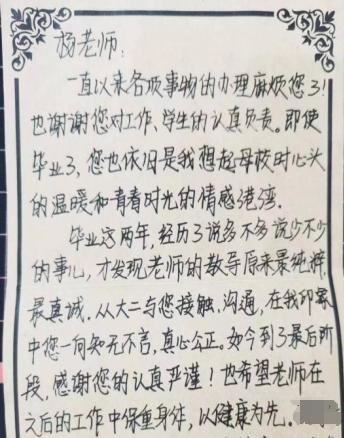 杨老师:
一直以来各项事物的办理麻烦您了!
也谢谢您对工作、学生的认真负责。即使
毕业了,您也依旧是我想起母校时心头
的温暖和青春时光的情感港湾.
毕业这两年,经历了说多不多说少不少
的事儿,才发现老师的教导原来最纯粹,
最真诚.从大二与您接触、沟通,在我印象
中您一向知无不言,真心公正。如今到了最后阶
段,感谢您的认真严谨!也希望老师在
之后的工作中保重身体,以健康为先.